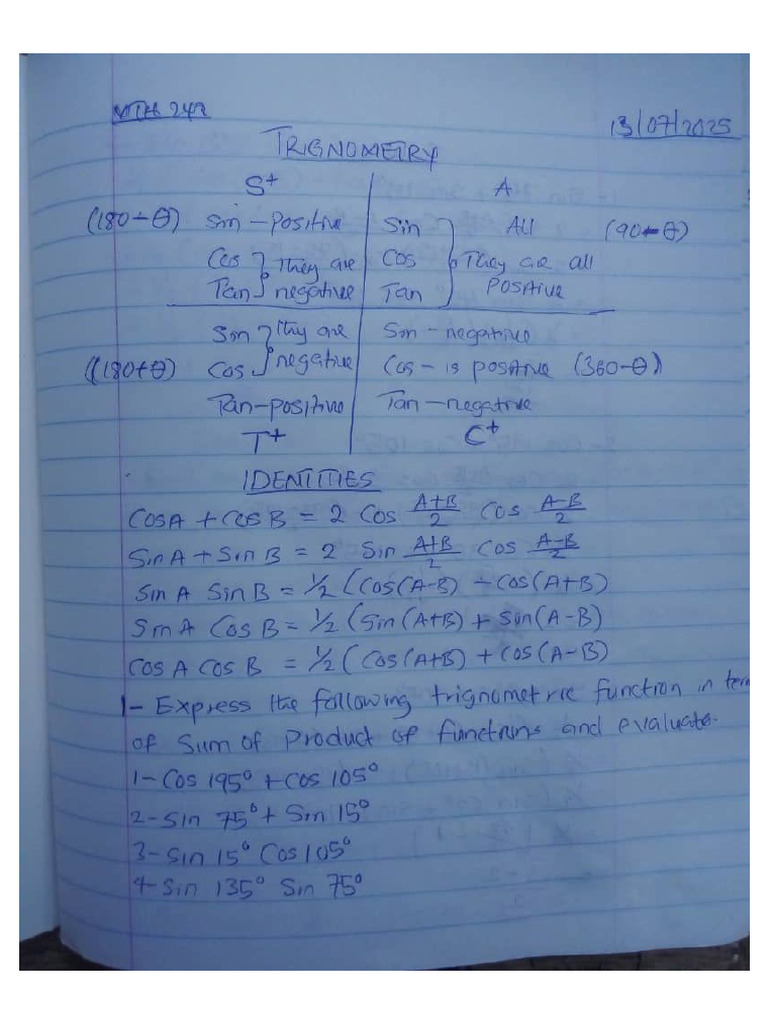 MTH 242
13/07/2025
TRIGNOMETRY
S+ A
(180-θ) Sin - Positive Sin All (90-θ)
Cos They are Cos They are all
Tan negative Tan Positive
Sin They are Sin - negative
(180+θ) Cos negative Cos - is positive (360-θ)
Tan - Positive Tan - negative
T+ C+
IDENTITIES
Cos A + Cos B = 2 Cos A+B/2 Cos A-B/2
Sin A + Sin B = 2 Sin A+B/2 Cos A-B/2
Sin A Sin B = 1/2 (Cos(A-B) - Cos(A+B)
Sin A Cos B = 1/2 (Sin(A+B) + Sin(A-B)
Cos A Cos B = 1/2 (Cos(A+B) + Cos(A-B)
1- Express the following trignometric function in term
of Sum of Product of functions and evaluate.
1- Cos 195° + Cos 105°
2- Sin 75° + Sin 15°
3- Sin 15° Cos 105°
4- Sin 135° Sin 75°